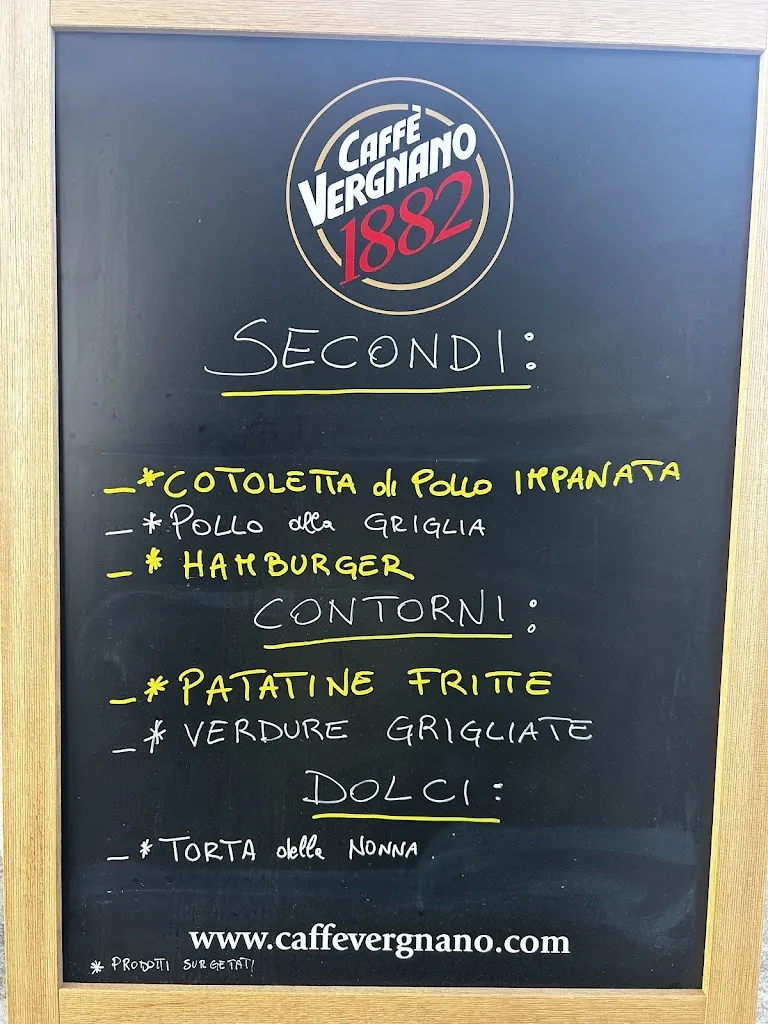 CAFFÈ
VERGNANO
1882
SECONDI:
_ *COTOLETTA di POLLO IMPANATA
_ *POLLO alla GRIGLIA
_ * HAMBURGER
CONTORNI:
_ *PATATINE FRITTE
_ * VERDURE GRIGLIATE
DOLCI:
_ * TORTA della NONNA.
www.caffevergnano.com
* PRODOTTI SURGETATI